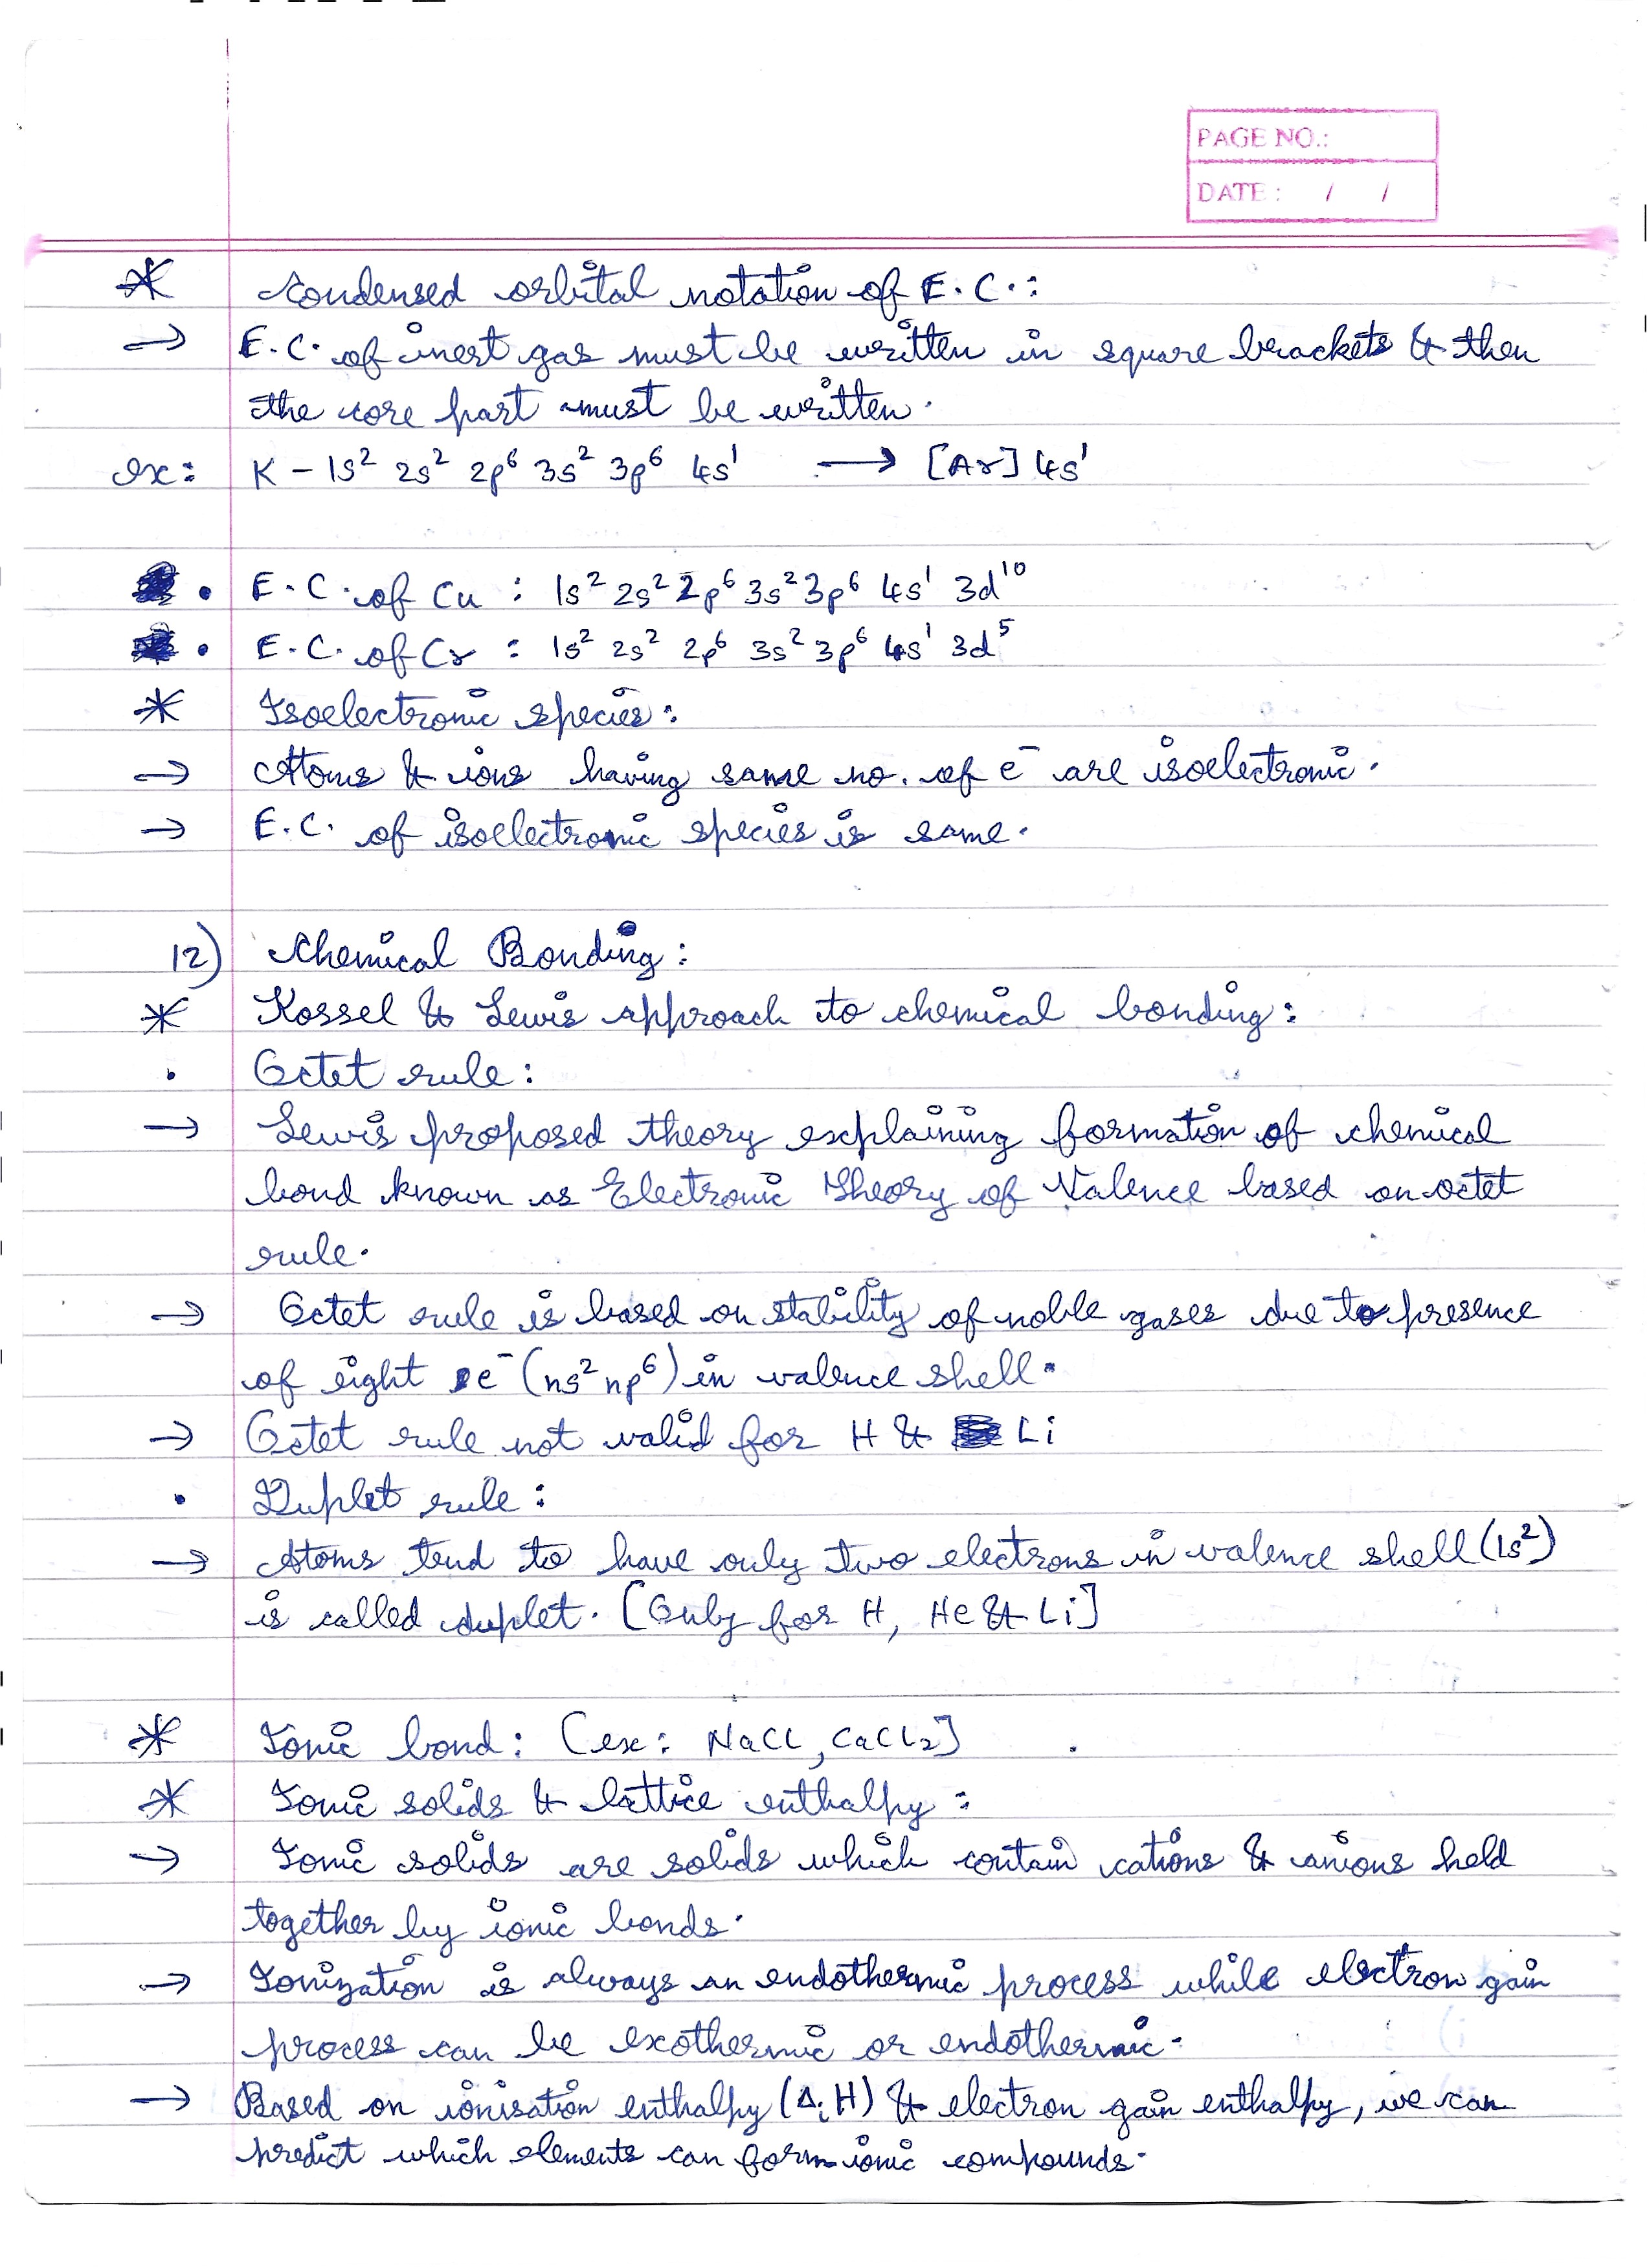 PAGE NO.:
DATE : / /
* Condensed orbital notation of E.C.:
→ E.C. of inert gas must be written in square brackets & then
the core part must be written.
ex: K – 1s² 2s² 2p⁶ 3s² 3p⁶ 4s¹ ⟶ [Ar] 4s¹
• E.C. of Cu : 1s² 2s² 2p⁶ 3s² 3p⁶ 4s¹ 3d¹⁰
• E.C. of Cr : 1s² 2s² 2p⁶ 3s² 3p⁶ 4s¹ 3d⁵
* Isoelectronic species:
→ Atoms & ions having same no. of e⁻ are isoelectronic.
→ E.C. of isoelectronic species is same.
12) Chemical Bonding:
* Kossel & Lewis approach to chemical bonding:
• Octet rule:
→ Lewis proposed theory explaining formation of chemical
bond known as Electronic Theory of Valence based on octet
rule.
→ Octet rule is based on stability of noble gases due to presence
of eight e⁻ (ns² np⁶) in valence shell.
→ Octet rule not valid for H & Li
• Duplet rule:
→ Atoms tend to have only two electrons in valence shell (1s²)
is called duplet. [Only for H, He & Li]
* Ionic bond: [ex: NaCl, CaCl₂]
* Ionic solids & lattice enthalpy:
→ Ionic solids are solids which contain cations & anions held
together by ionic bonds.
→ Ionization is always an endothermic process while electron gain
process can be exothermic or endothermic.
→ Based on ionisation enthalpy (ΔᵢH) & electron gain enthalpy, we can
predict which elements can form ionic compounds.